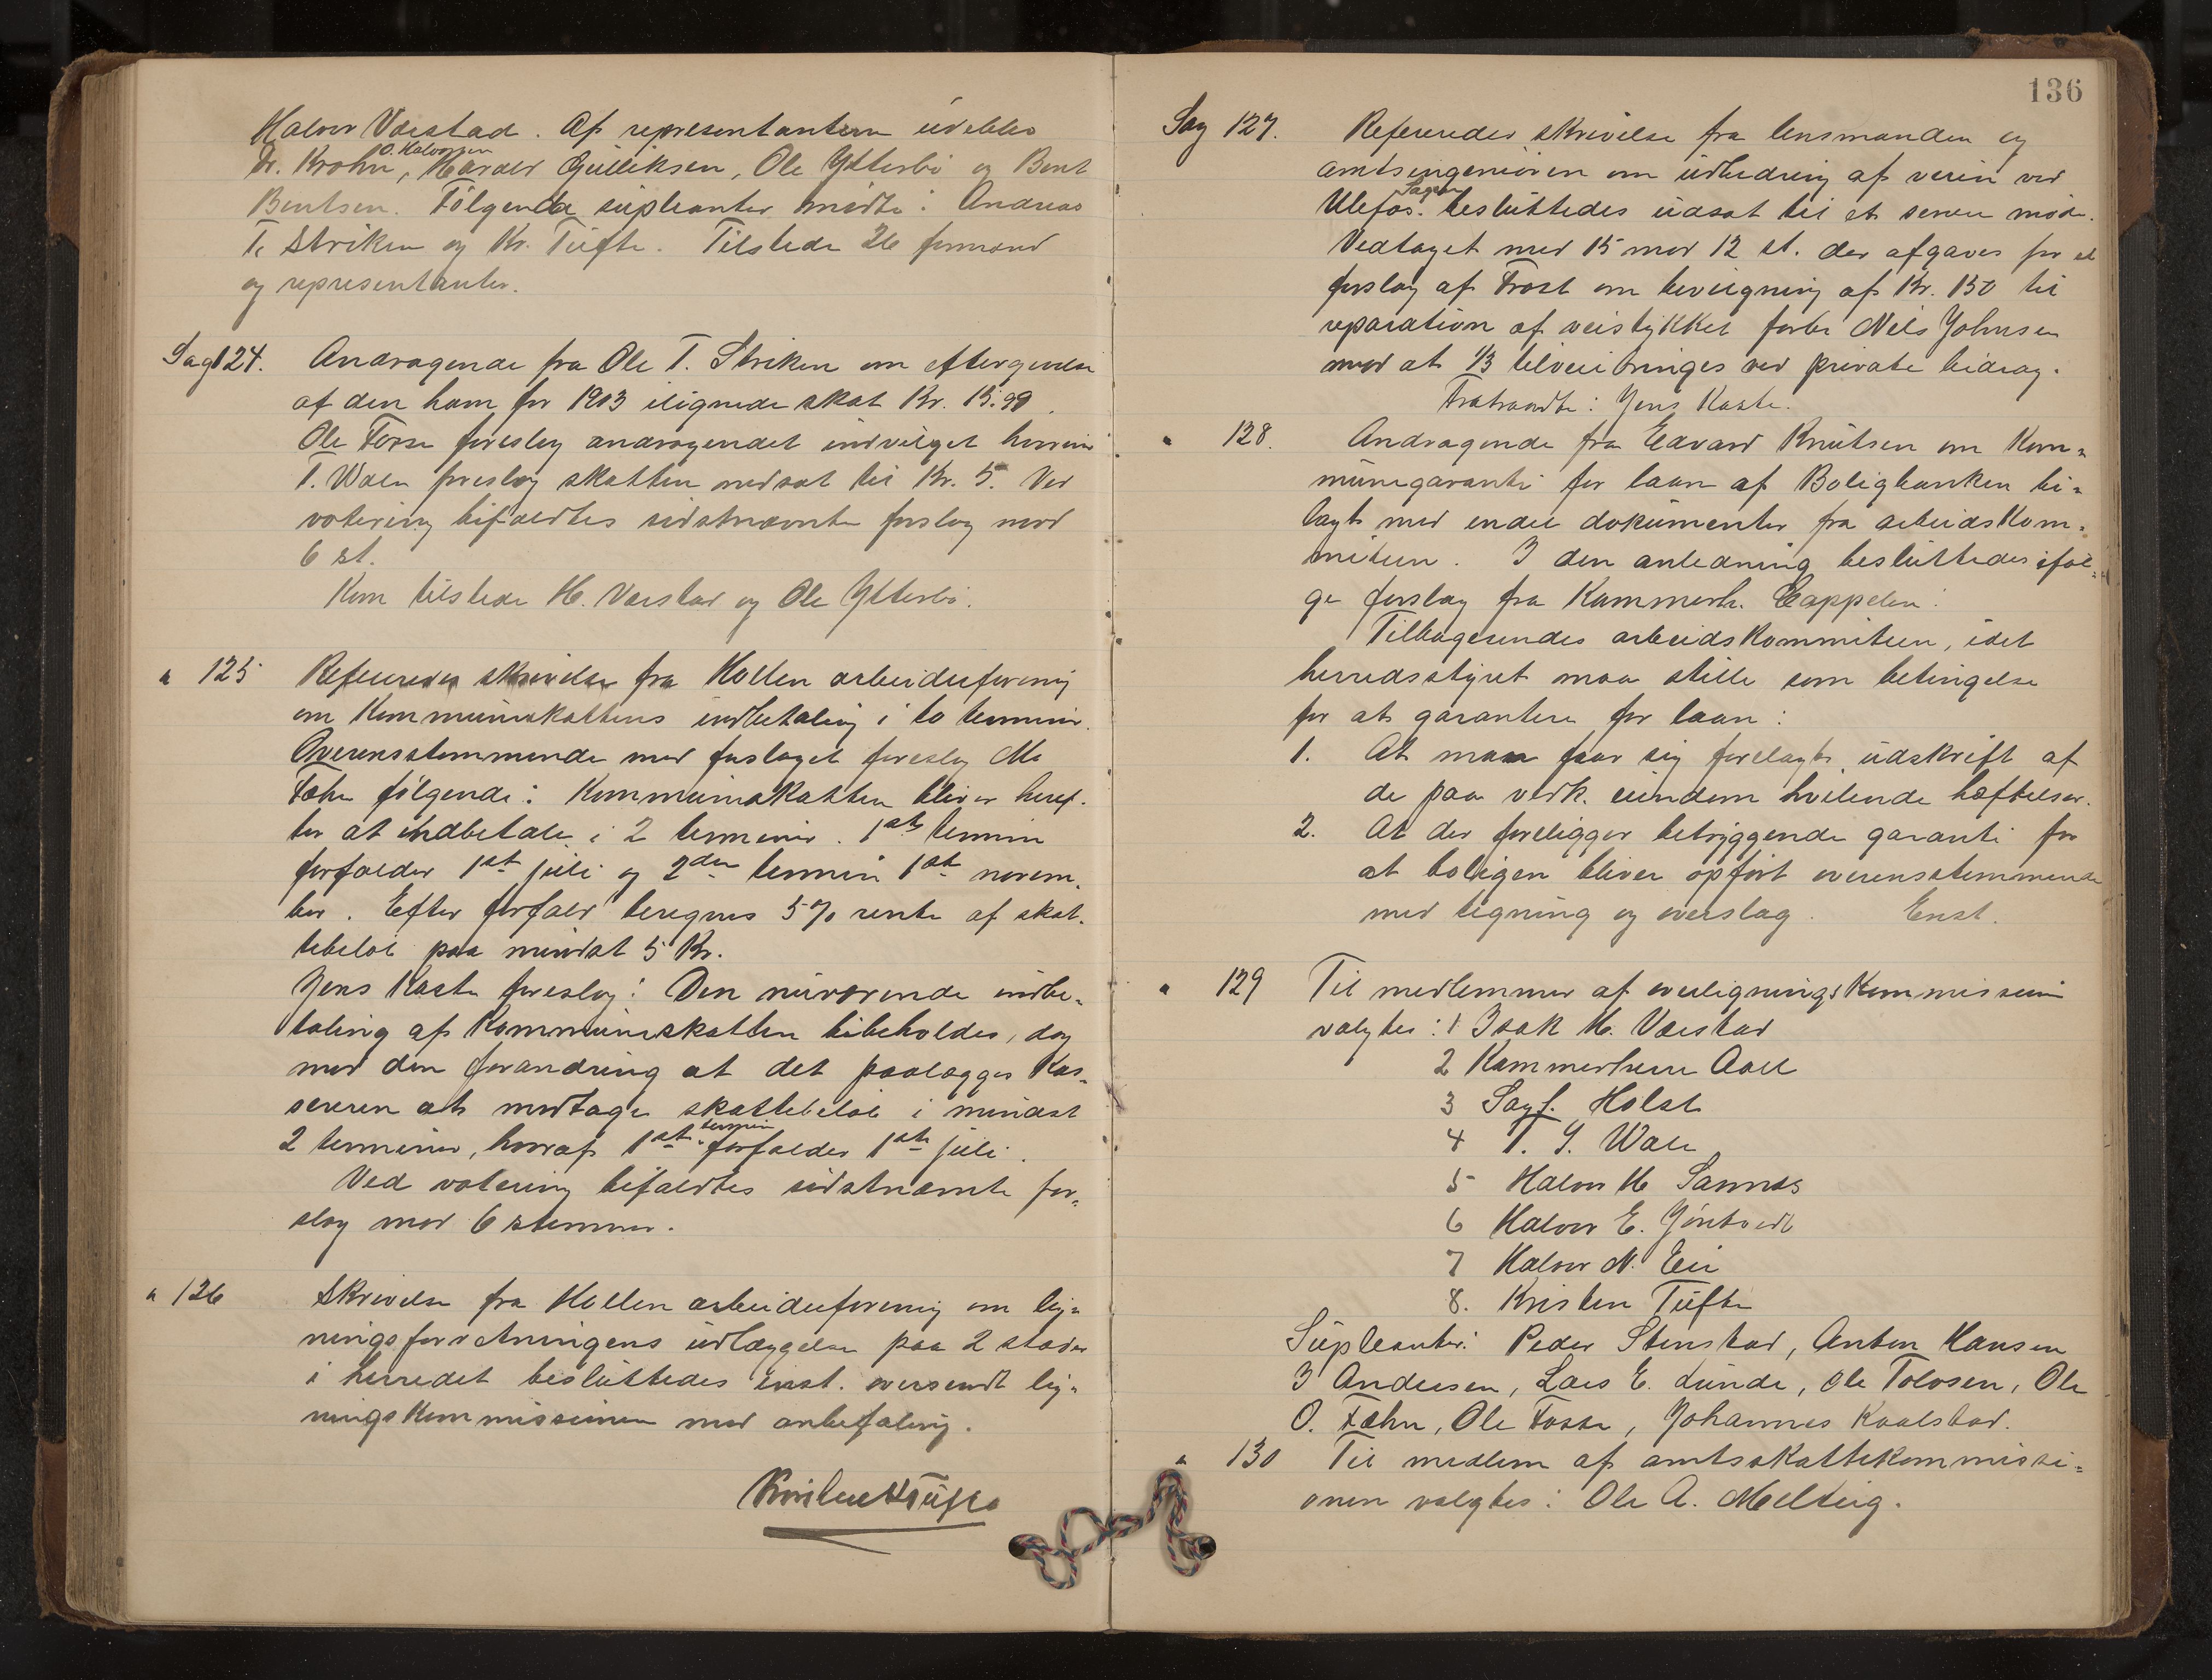 Halvor Værstad. Af representanterne udeblev
Dr. Krohn, O. Halvorsen Harald Gulliksen, Ole Ytterbö og Bent
Bentsen. Fölgende supleanter mödte: Andreas
T. Striken og Kr. Tufte. Tilstede 26 formænd
og representanter.
Sag 124. Andragende fra Ole T. Striken om eftergivelse
af den ham for 1903 ilignede skat Kr. 15.99.
Ole Fosse foreslog andragendet indvilget
T. Walen foreslog skatten nedsat til Kr. 5. Ved
votering bifaldtes sidstnævnte forslag mod
6 st.
Kom tilstede H. Værstad og Ole Ytterbö.
" 125 Refereredes skrivelse fra Hollen arbeiderforening
om Kommuneskattens indbetaling i to terminer.
Overensstemmende med forslaget foreslog
Fæhn fölgende: Kommuneskatten bliver heref-
ter at indbetale i 2 terminer. 1ste termin
forfalder 1ste juli og 2den termin 1ste novem-
ber. Efter forfald beregnes 5% rente af skat-
tebelöb paa mindst 5 Kr.
Jens Kaste foreslog: Den nuværende indbe-
taling af Kommuneskatten bibeholdes, dog
med den forandring at det paalægges Kas-
sereren at modtage skattebelöb i mindst
2 terminer, hvoraf 1ste termin forfalder 1ste juli.
Ved votering bifaldtes sidstnævnte for-
slag mod 6 stemmer.
" 126 Skrivelse fra Hollen arbeiderforening om lig-
ningsforretningens udlæggelse paa 2 steder
i herredet besluttedes enst. oversendt lig-
ningskommissionen med anbefaling.
Kristen Tufte
136
Sag 127. Refereredes skrivelse fra lensmanden og
amtsingeniören om udbedring af veien ved
Ulefos. Sagen besluttedes udsat til et senere möde.
Vedtaget med 15 mod 12 st. der afgaves for et
forslag af Frost om bevilgning af Kr. 150 til
reparation af veistykket forbi Nels Johnsen
mod at 1/3 tilveiebringes ved private bidrag.
Fratraadte: Jens Kaste.
" 128. Andragende fra Edvard Knutsen om Kom-
munegaranti for laan af Boligbanken bi-
lagt med endel dokumenter fra arbeidskom-
miteen. I den anledning besluttedes iföl-
ge forslag fra Kammerh. Cappelen:
Tilbagesendes arbeidskommiteen, idet
herredsstyret maa stille som betingelse
for at garantere for laan:
1. At man faar sig forelagt udskrift af
de paa vedk. eiendom hvilende hæftelser.
2. At der foreligger betryggende garanti for
at boligen bliver opfört overensstemmende
med tegning og overslag. Enst.
" 129 Til medlemmer af overligningskommissionen
valgtes: 1 Isak H. Værstad
2 Kammerherre Aall
3 Sagf. Holst
4 T. G. Wale
5 Halvor H Sannes
6 Halvor E. Jöntvedt
7 Halvor N. Eie
8. Kristen Tufte
Supleanter: Peder Stenstad, Anton Hansen
I Andersen, Lars E. Lunde, Ole Tolvsen, Ole
O. Fæhn, Ole Fosse, Johannes Kaalstad.
" 130 Til medlem af amtsskattekommissi-
onen valgtes: Ole A. Melteig.